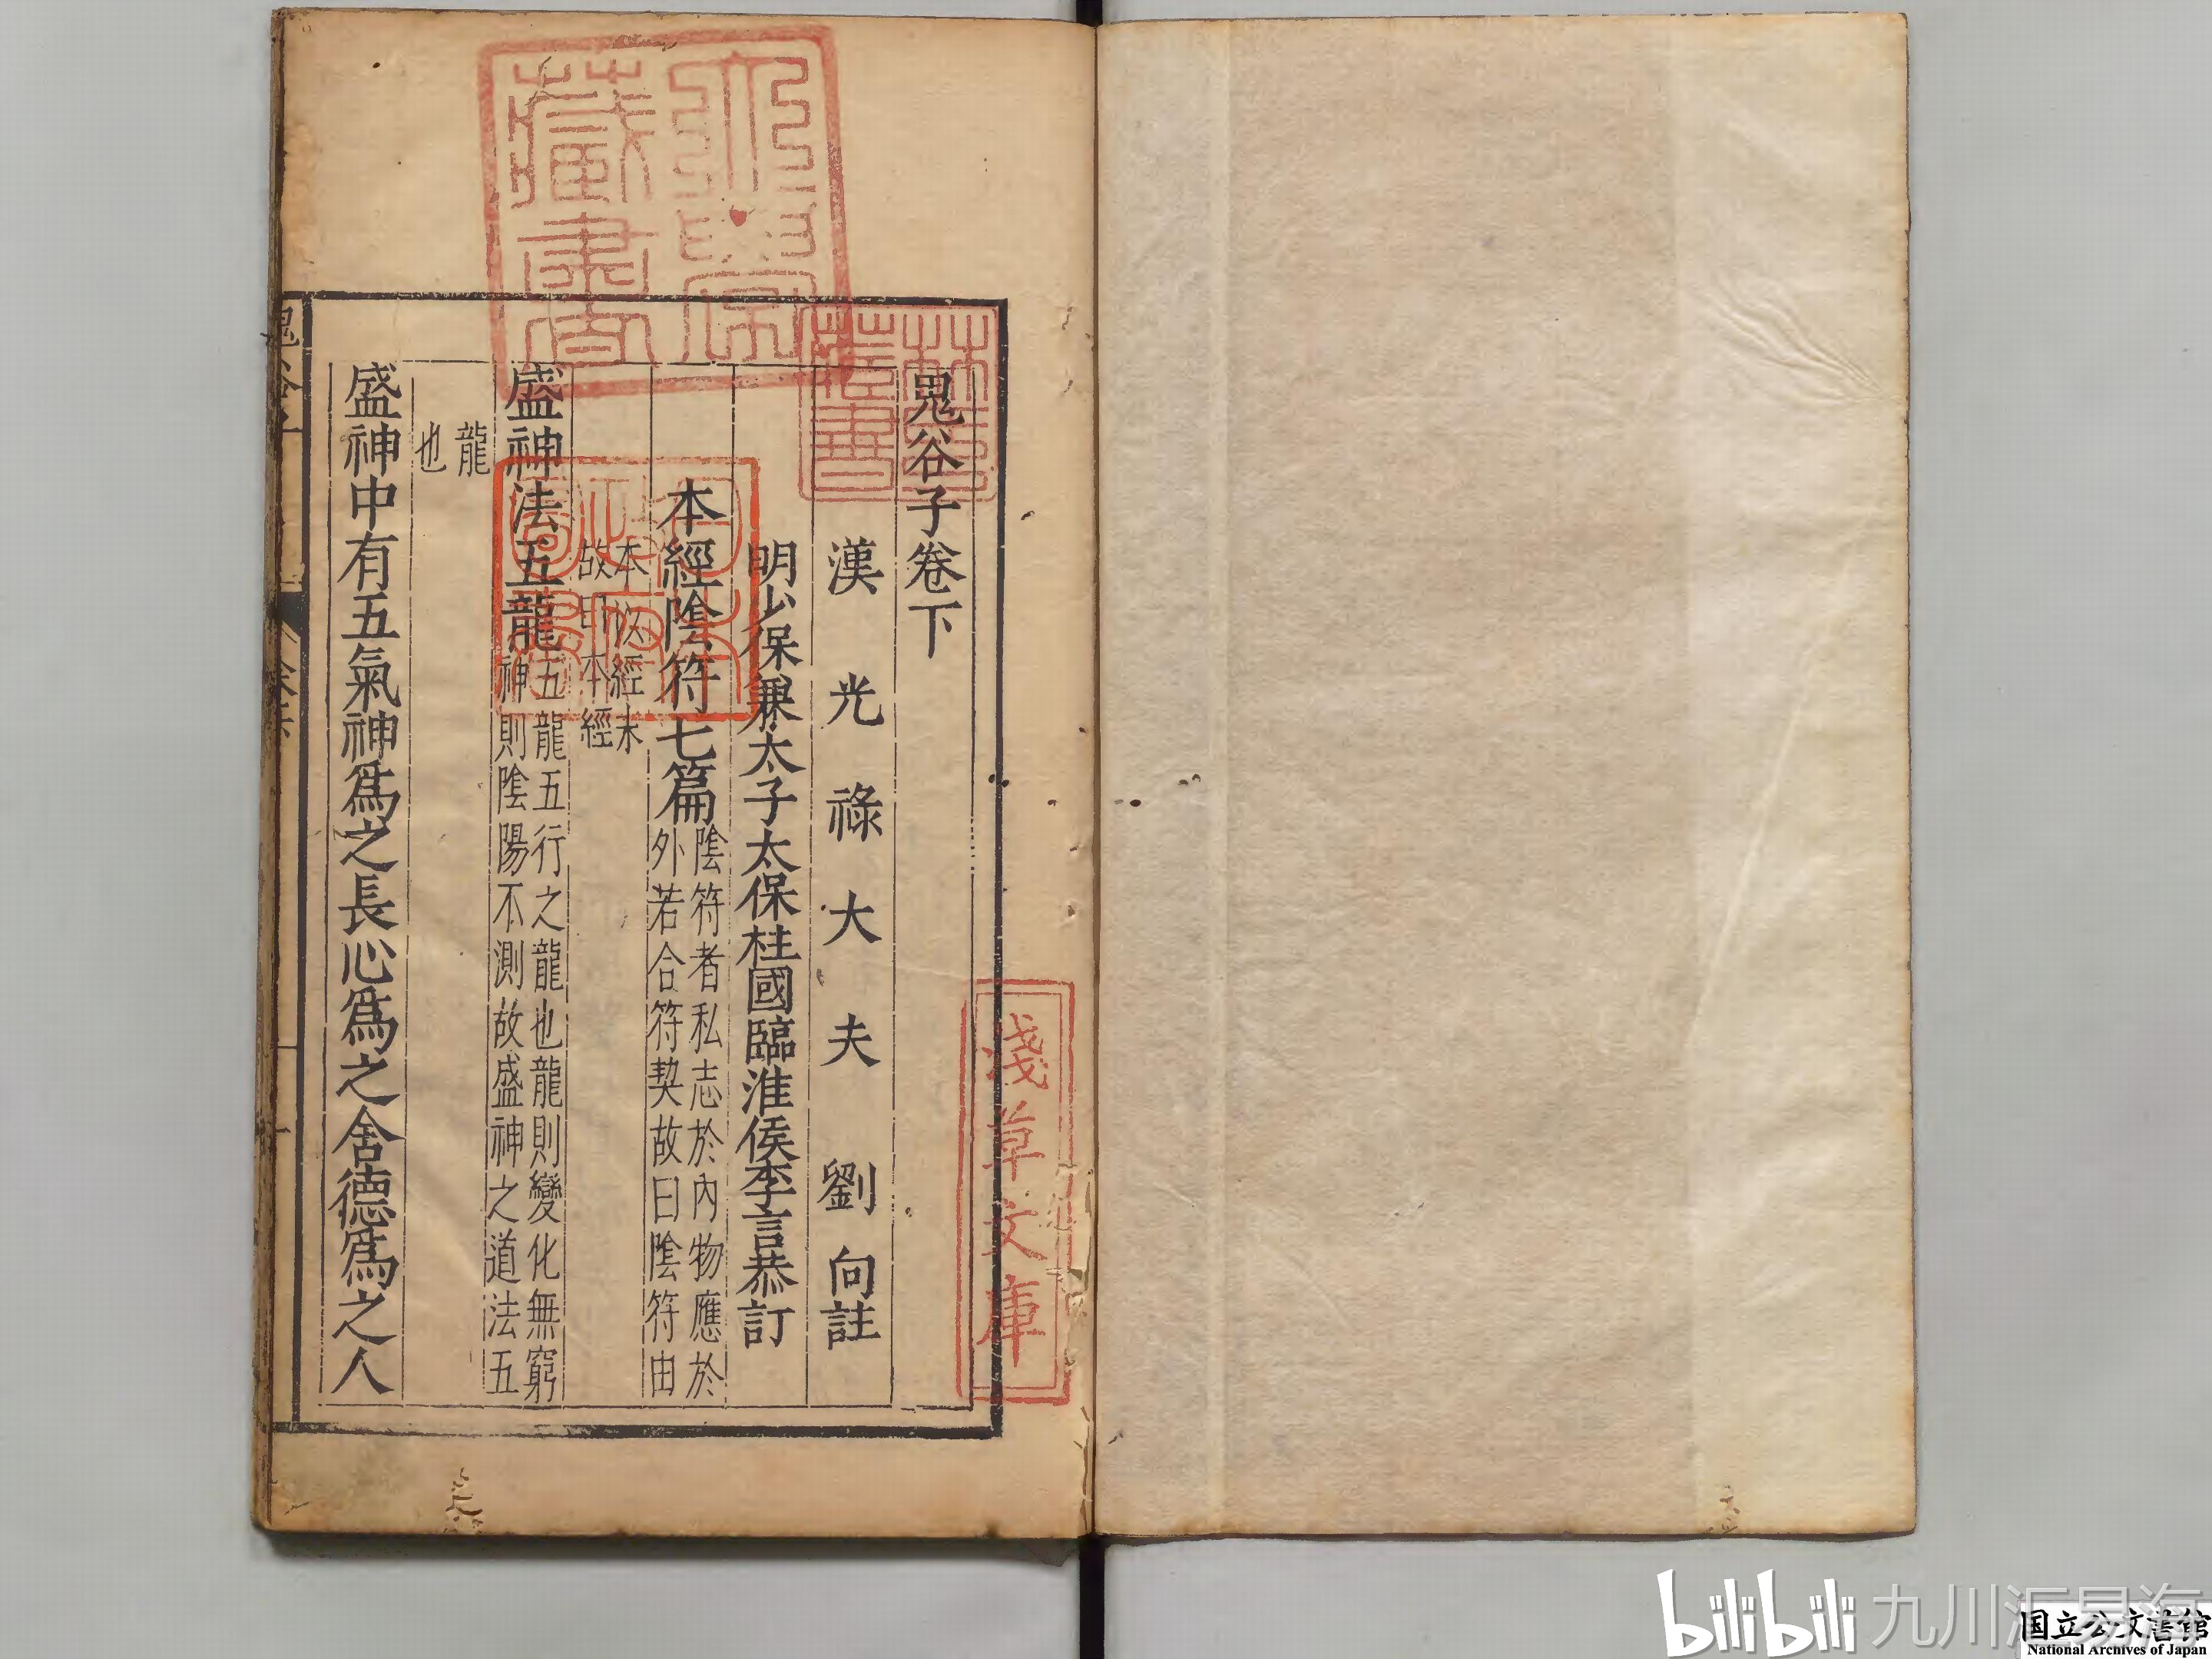 鬼谷子卷下
漢光祿大夫劉向註
明少保兼太子太保柱國臨淮侯李言恭訂
本經陰符七篇陰符者私志於內物應於
外若合符契故曰陰符由
本以經末
故曰本經
盛神法五龍五龍五行之龍也龍則變化無窮
神則陰陽不測故盛神之道法五
龍
也
盛神中有五氣神爲之長心爲之舍德爲之人
淺草文庫
林氏藏書
藏書
bilibili 九川汇易海
国立公文書館
National Archives of Japan